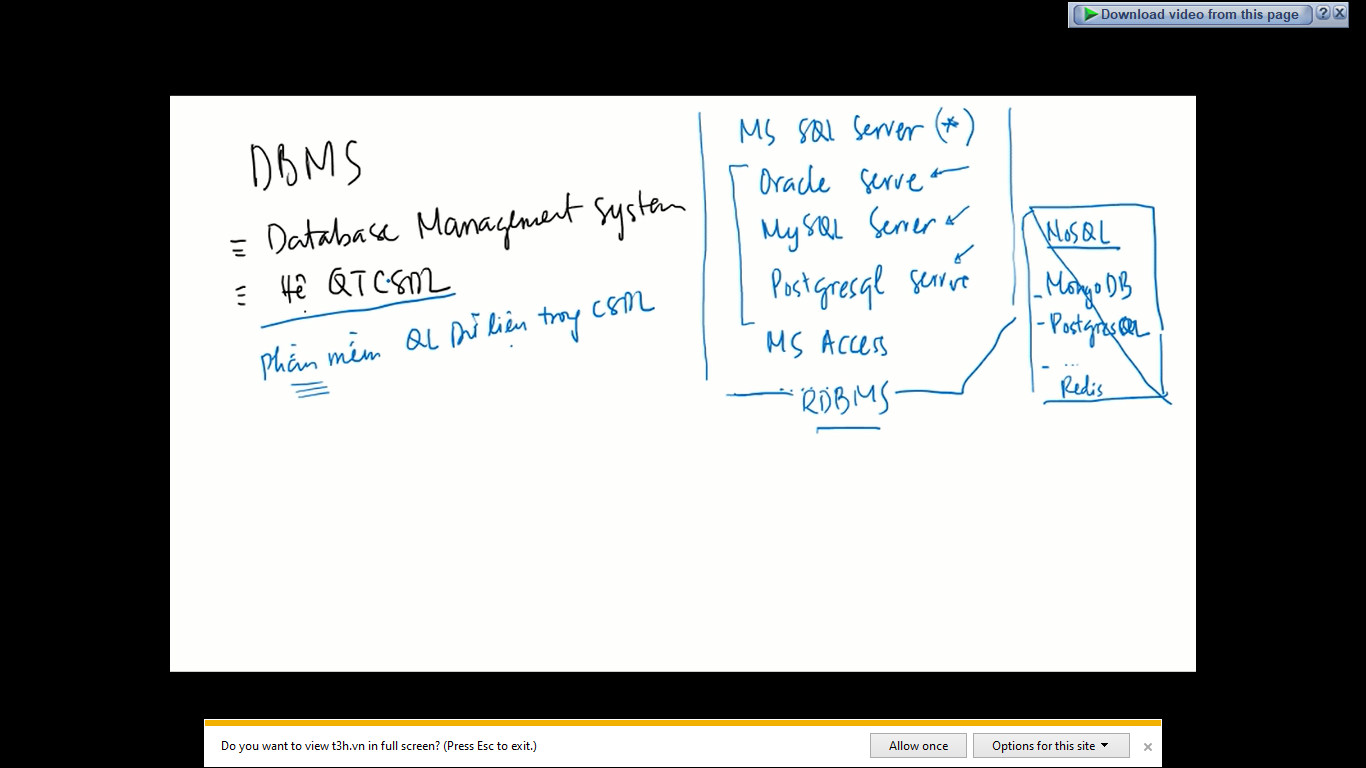 Download video from this page
DBMS
≡ Database Management System
≡ Hệ QTCSDL
phần mềm QL Dữ liệu trong CSDL
MS SQL Server (*)
Oracle serve
MySQL Server
Postgresql serve
MS Access
......
RDBMS
NoSQL
- MongoDB
- PostgresQL
- ...
Redis
Do you want to view t3h.vn in full screen? (Press Esc to exit.)
Allow once
Options for this site